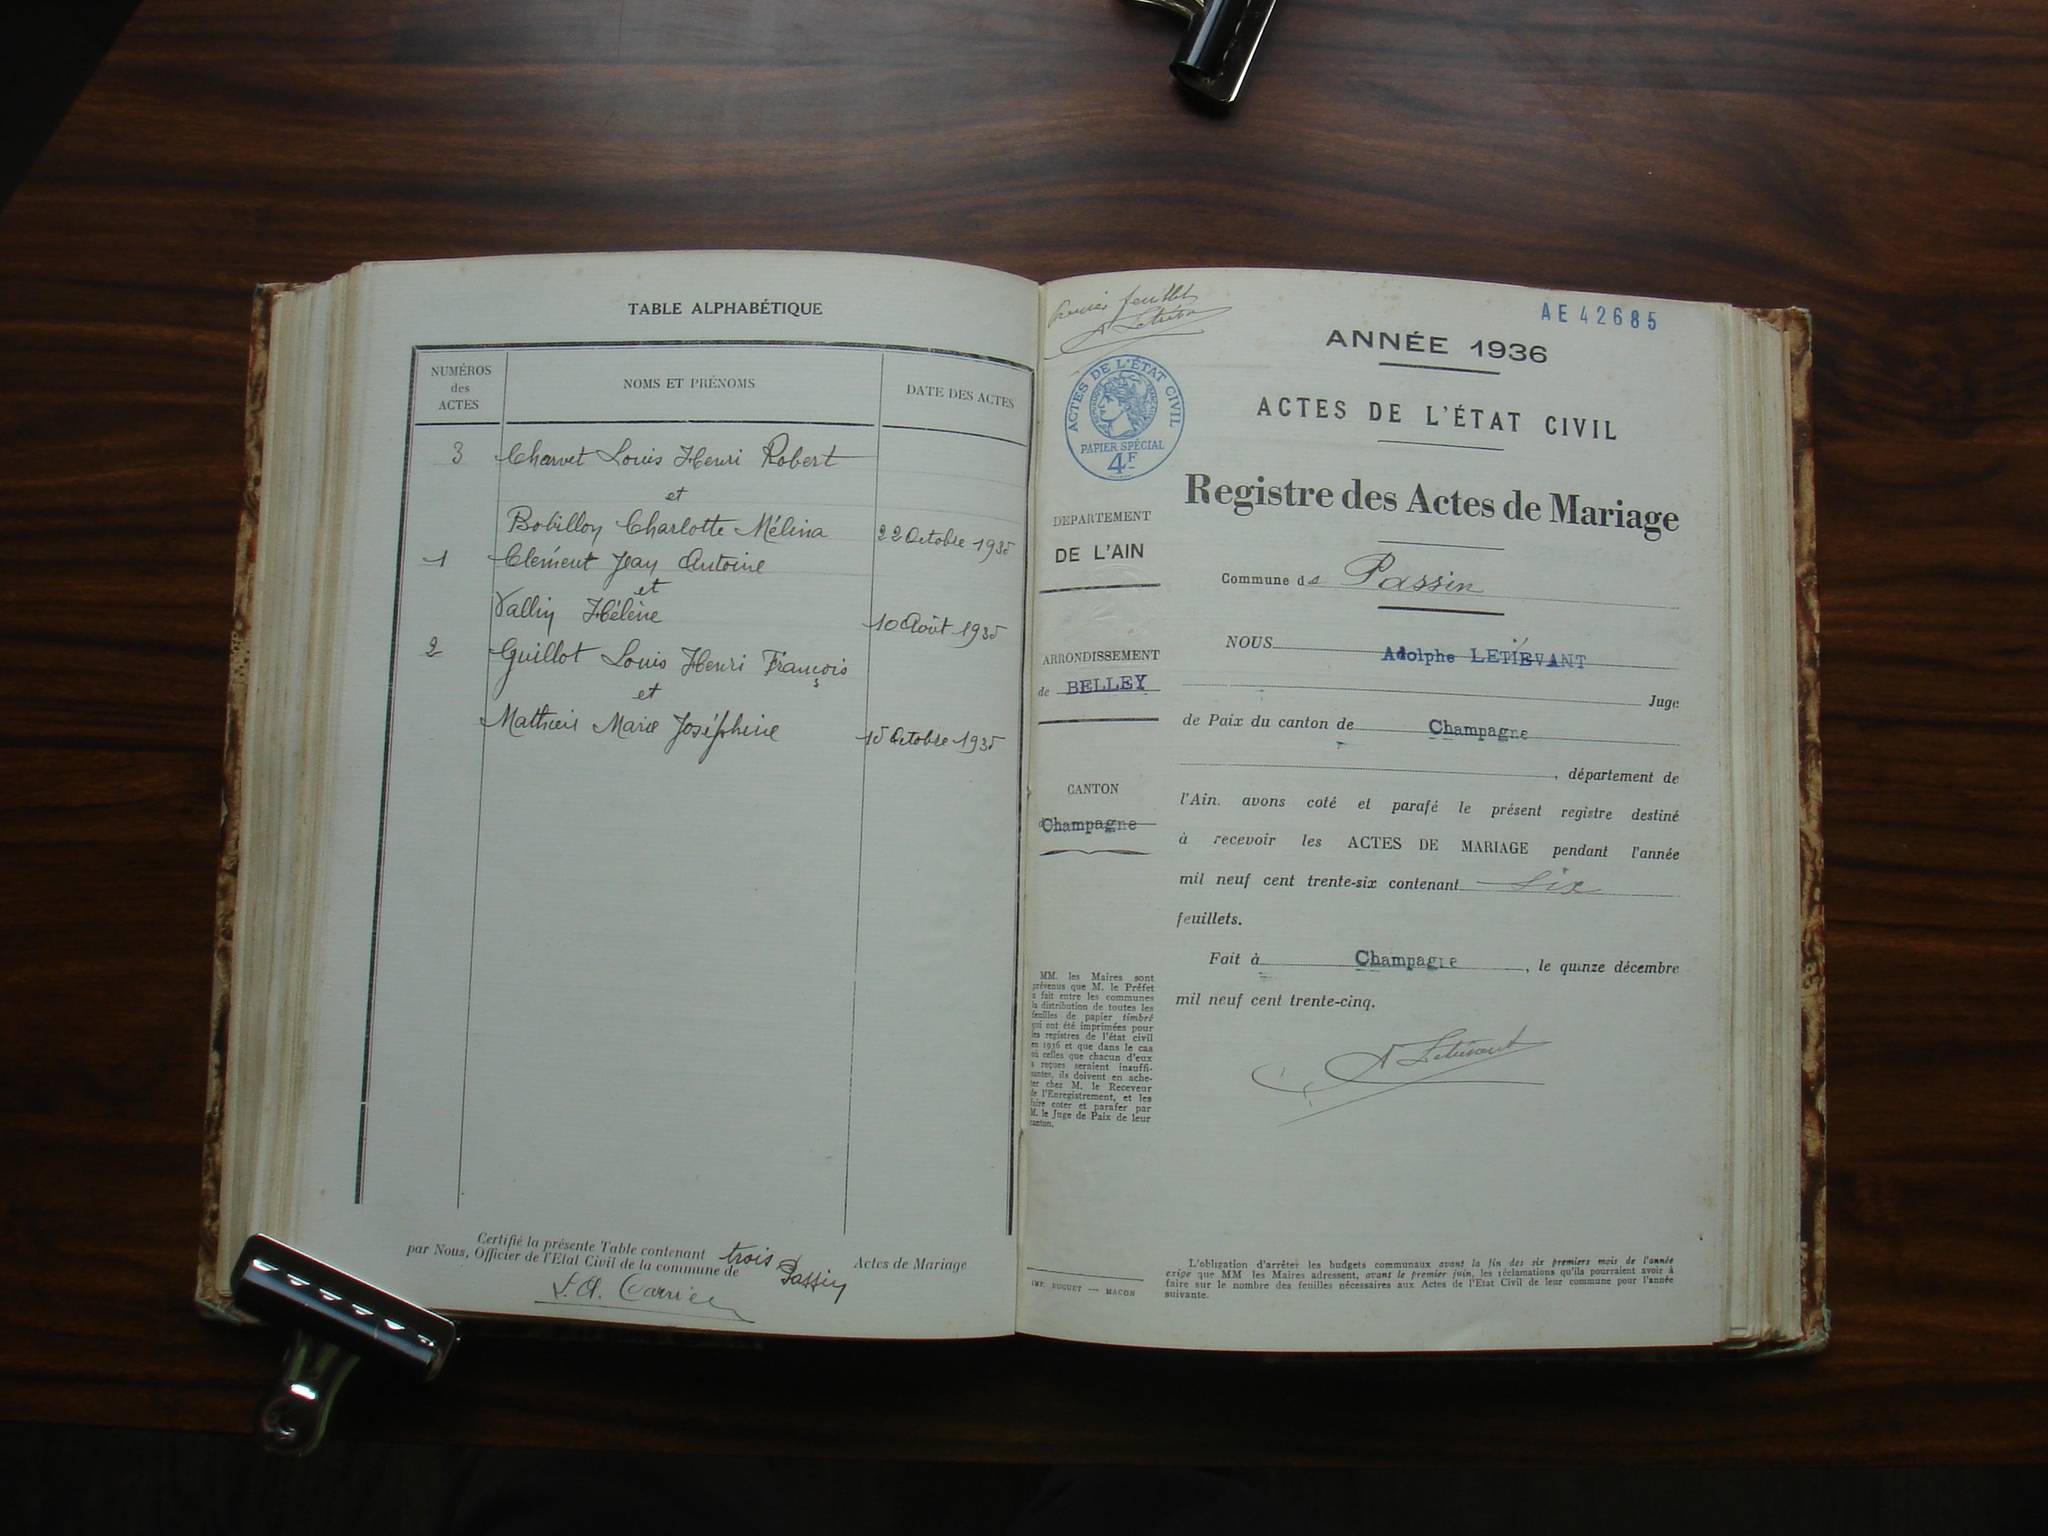 TABLE ALPHABÉTIQUE
NUMÉROS
des
ACTES
NOMS ET PRÉNOMS
DATE DES ACTES
3 Charvet Louis Henri Robert
et
Bobillon Charlotte Mélina 22 Octobre 1935
1 Clément Jean Antoine
et
Vallin Hélène 10 Août 1935
2 Guillot Louis Henri François
et
Mathieu Marie Joséphine 15 Octobre 1935
Certifié la présente Table contenant trois Actes de Mariage
par Nous, Officier de l'Etat Civil de la commune de Passin
Premier feuillet
AE 42685
ANNÉE 1936
ACTES DE L'ÉTAT CIVIL
PAPIER SPÉCIAL
4F
ACTES DE L'ÉTAT CIVIL
Registre des Actes de Mariage
DEPARTEMENT
DE L'AIN
Commune de Passin
ARRONDISSEMENT
de BELLEY
CANTON
Champagne
NOUS Adolphe LETIÉVANT
Juge
de Paix du canton de Champagne
, département de
l'Ain. avons coté et parafé le présent registre destiné
à recevoir les ACTES DE MARIAGE pendant l'année
mil neuf cent trente-six contenant six
feuillets.
Fait à Champagne, le quinze décembre
mil neuf cent trente-cinq.
A Letiévant
MM. les Maires sont
prévenus que M. le Préfet
a fait entre les communes
la distribution de toutes les
feuilles de papier timbré
qui ont été imprimées pour
les registres de l'état civil
en 1936 et que dans le cas
où celles que chacun d'eux
a reçues seraient insuffi-
santes, ils doivent en ache-
ter chez M. le Receveur
de l'Enregistrement, et les
faire coter et parafer par
M. le Juge de Paix de leur
canton.
IMP. BUGUET — MACON
L'obligation d'arrêter les budgets communaux avant la fin des six premiers mois de l'année
exige que MM les Maires adressent, avant le premier juin, les réclamations qu'ils pourraient avoir à
faire sur le nombre des feuilles nécessaires aux Actes de l'Etat Civil de leur commune pour l'année
suivante.